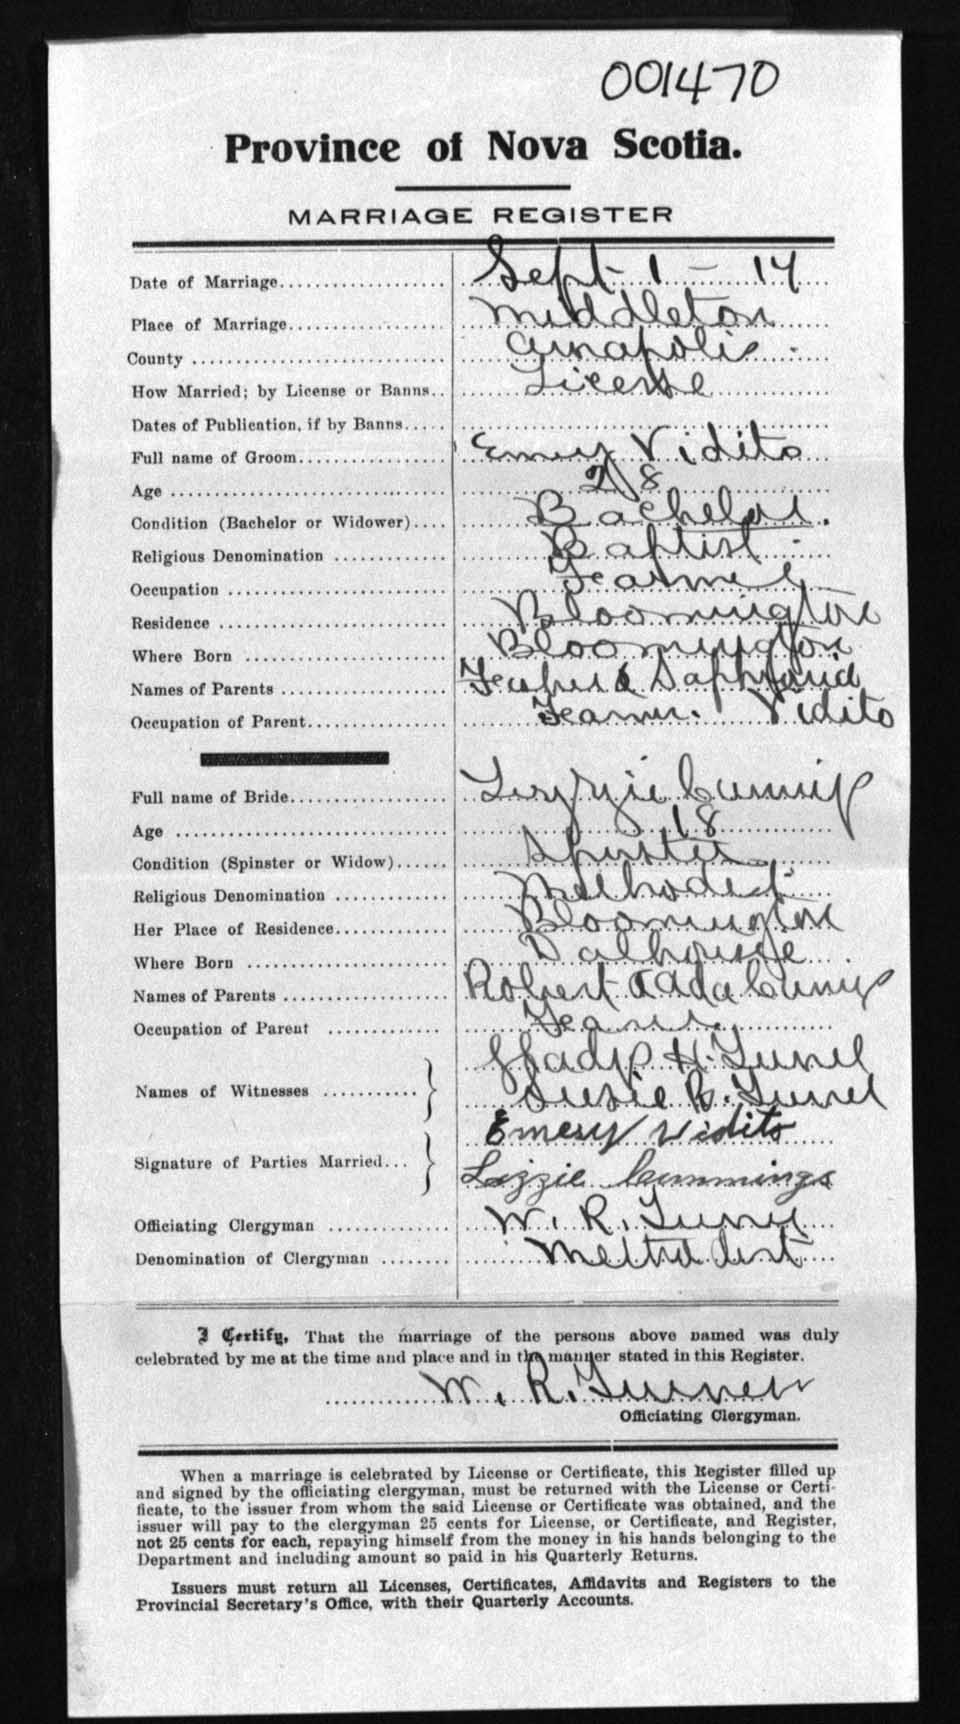 001470
Province of Nova Scotia.
MARRIAGE REGISTER
Date of Marriage Sept- 1 - 14
Place of Marriage Middleton
County Annapolis
How Married; by License or Banns License
Dates of Publication, if by Banns
Full name of Groom Emery Vidito
Age 28
Condition (Bachelor or Widower) Bachelor.
Religious Denomination Baptist
Occupation Farmer
Residence Bloomington
Where Born Bloomington
Names of Parents &
Occupation of Parent Farmer. Vidito
Full name of Bride Lizzie
Age 18
Condition (Spinster or Widow) Spinster
Religious Denomination Methodist
Her Place of Residence Bloomington
Where Born Dalhousie
Names of Parents Robert & Ada
Occupation of Parent Farmer
Gladys H.
Names of Witnesses Susie B.
Emery Vidito
Signature of Parties Married Lizzie Cummings
Officiating Clergyman W. R. Turner
Denomination of Clergyman Methodist
I Certify, That the marriage of the persons above named was duly
celebrated by me at the time and place and in the manner stated in this Register.
W. R. Turner
Officiating Clergyman.
When a marriage is celebrated by License or Certificate, this Register filled up
and signed by the officiating clergyman, must be returned with the License or Certi-
ficate, to the issuer from whom the said License or Certificate was obtained, and the
issuer will pay to the clergyman 25 cents for License, or Certificate, and Register,
not 25 cents for each, repaying himself from the money in his hands belonging to the
Department and including amount so paid in his Quarterly Returns.
Issuers must return all Licenses, Certificates, Affidavits and Registers to the
Provincial Secretary's Office, with their Quarterly Accounts.